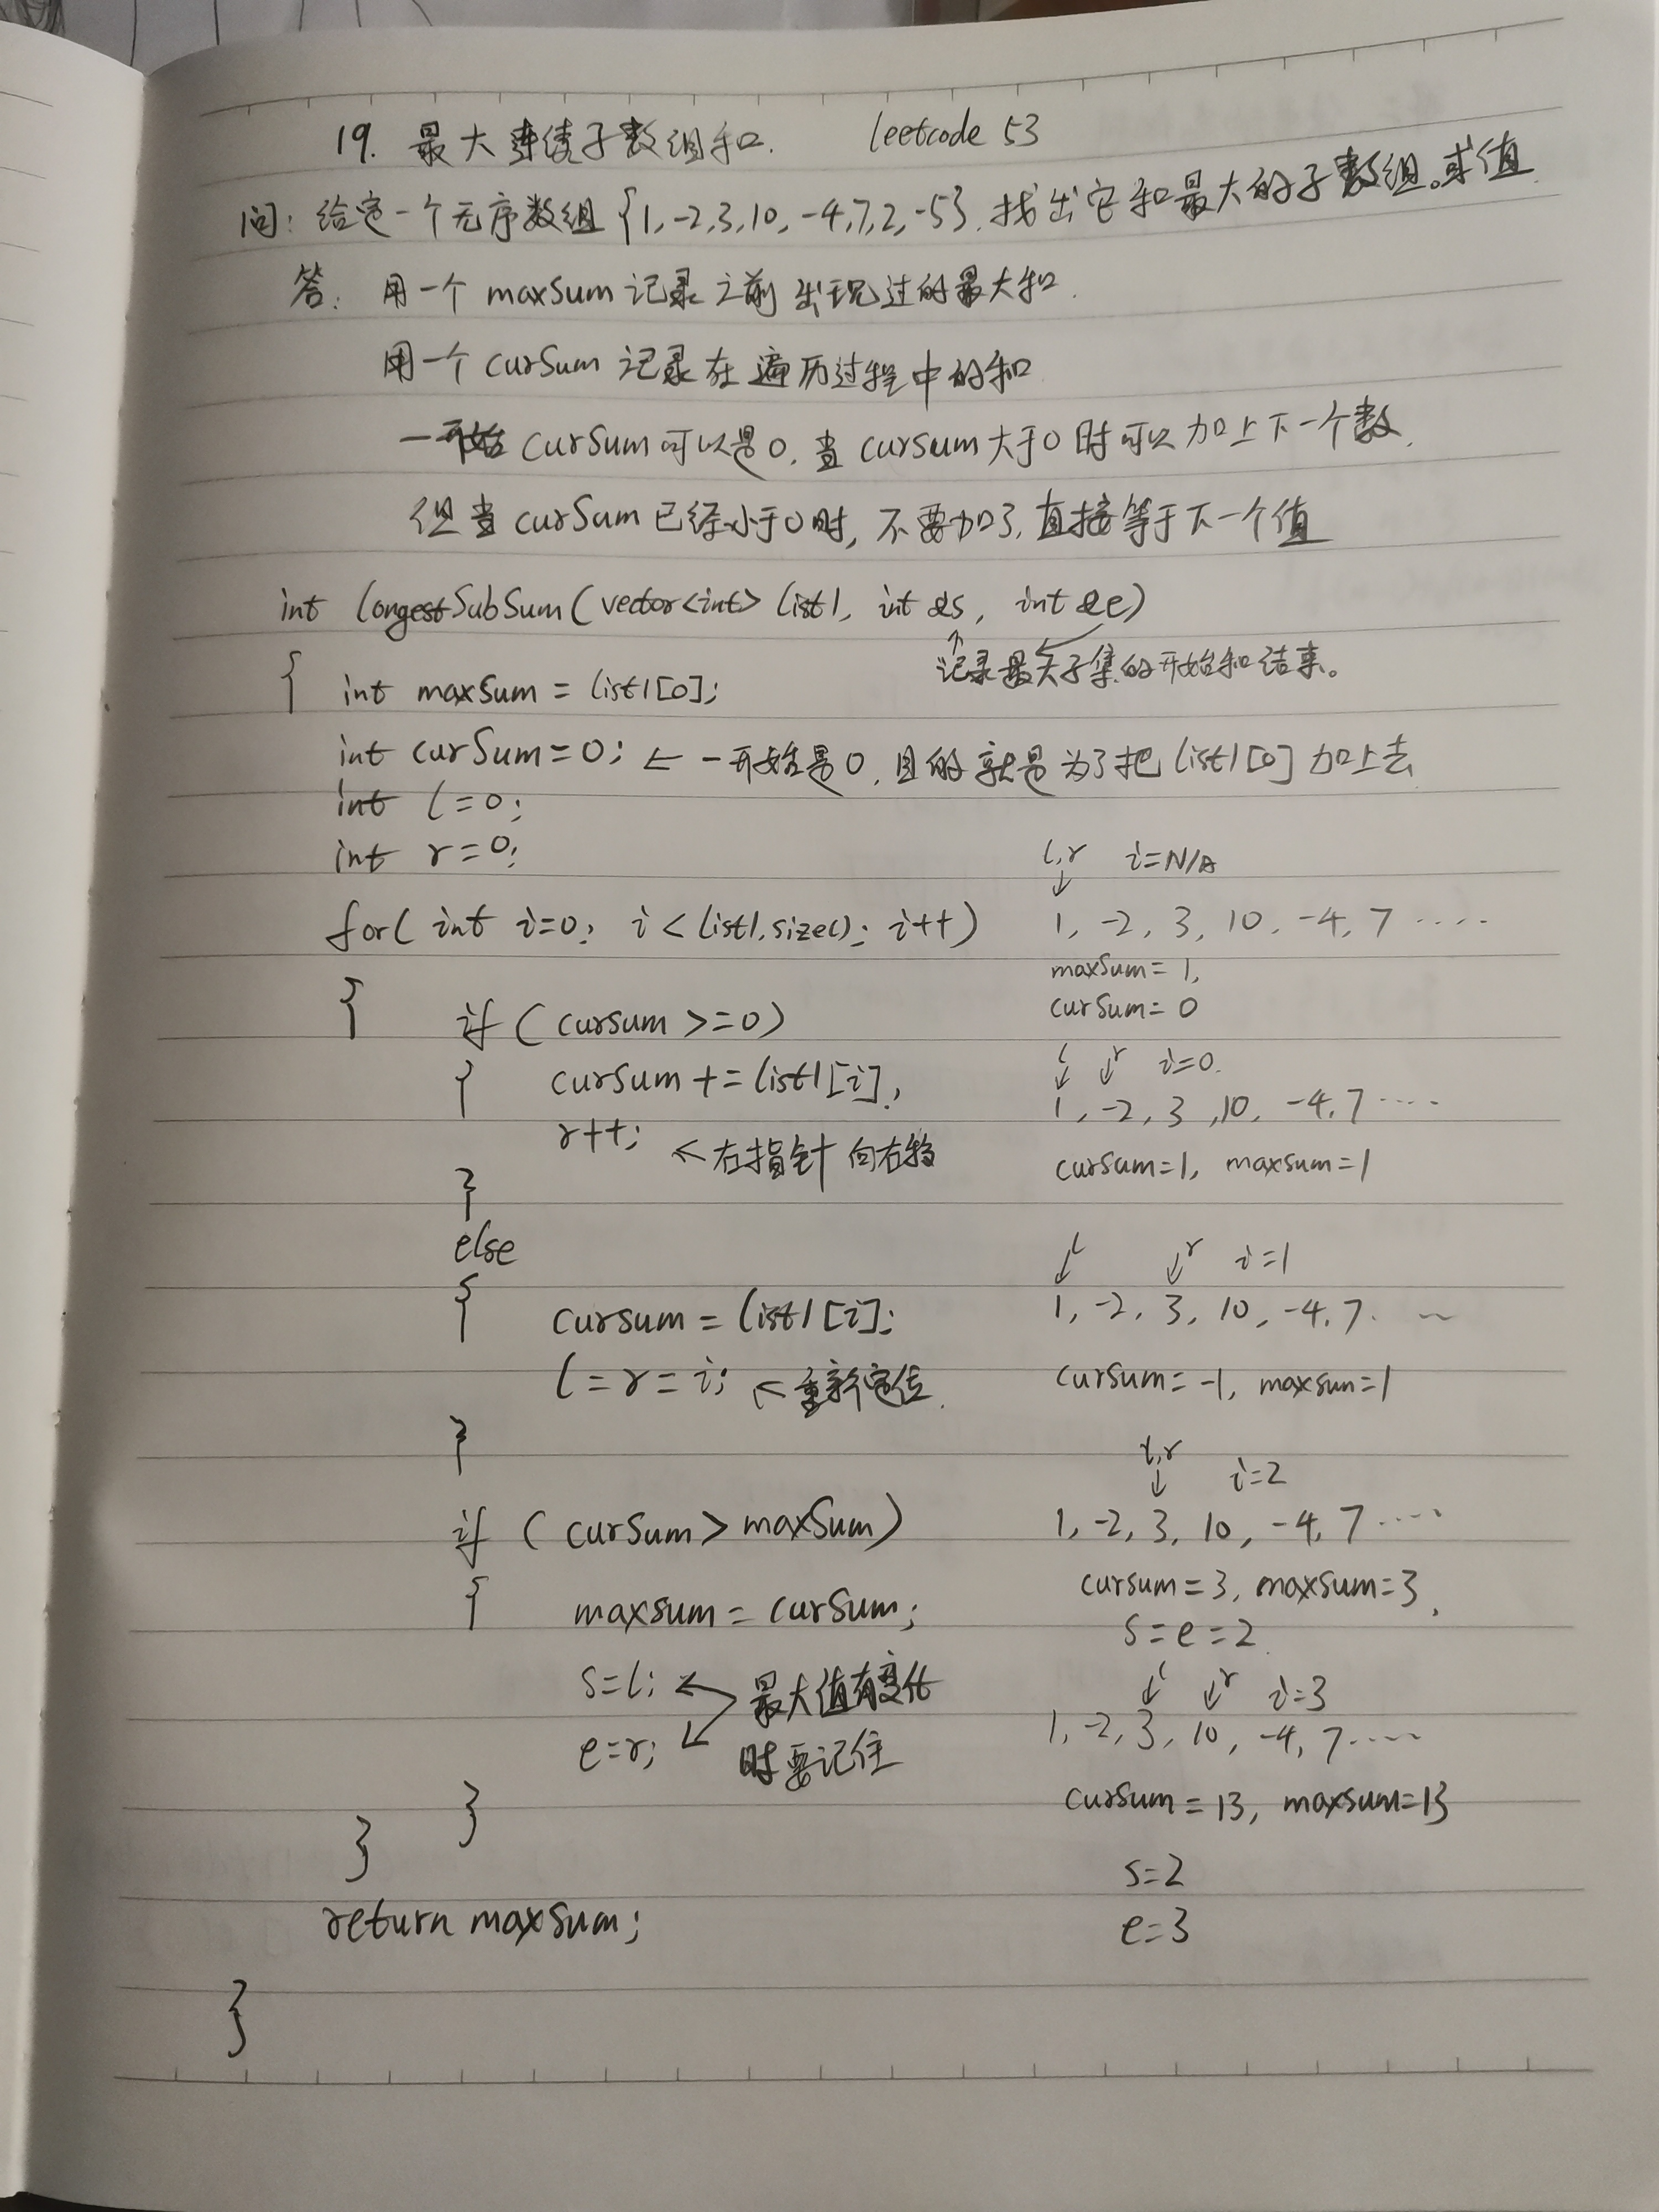 19. 最大连续子数组和. leetcode 53
问: 给定一个无序数组 {1, -2, 3, 10, -4, 7, 2, -5}. 找出它和最大的子数组。求值
答: 用一个 maxSum 记录之前出现过的最大和.
用一个 curSum 记录在遍历过程中的和
一开始 curSum 可以是 0, 当 cursum 大于 0 时可以加上下一个数.
但当 curSum 已经小于 0 时, 不要加了, 直接等于下一个值
int longestSubSum(vector<int> list1, int &s, int &e)
记录最大子集的开始和结束。
{ int maxSum = list1[0];
int curSum = 0; ← 一开始是 0, 目的就是为了把 list1[0] 加上去
int l = 0;
int r = 0;
for( int i=0; i < list1.size(); i++)
{ if ( cursum >=0)
{ cursum += list1[i];
r++; ← 右指针向右移
}
else
{ cursum = list1[i];
l = r = i; ← 重新定位.
}
if ( curSum > maxSum)
{ maxsum = curSum;
s=l; ← 最大值有变化
e=r; ← 时要记住
}
}
return maxSum;
}
l,r i=N/A
↓
1, -2, 3, 10, -4, 7 ....
maxSum = 1,
curSum = 0
l r i=0.
↓ ↓
1, -2, 3, 10, -4, 7 ....
cursum=1, maxsum=1
l r i=1
↓ ↓
1, -2, 3, 10, -4, 7. ~
cursum=-1, maxsum=1
l,r
↓ i=2
1, -2, 3, 10, -4, 7 ....
cursum=3, maxsum=3,
s=e=2.
l r i=3
↓ ↓
1, -2, 3, 10, -4, 7....
cursum=13, maxsum=13
s=2
e=3